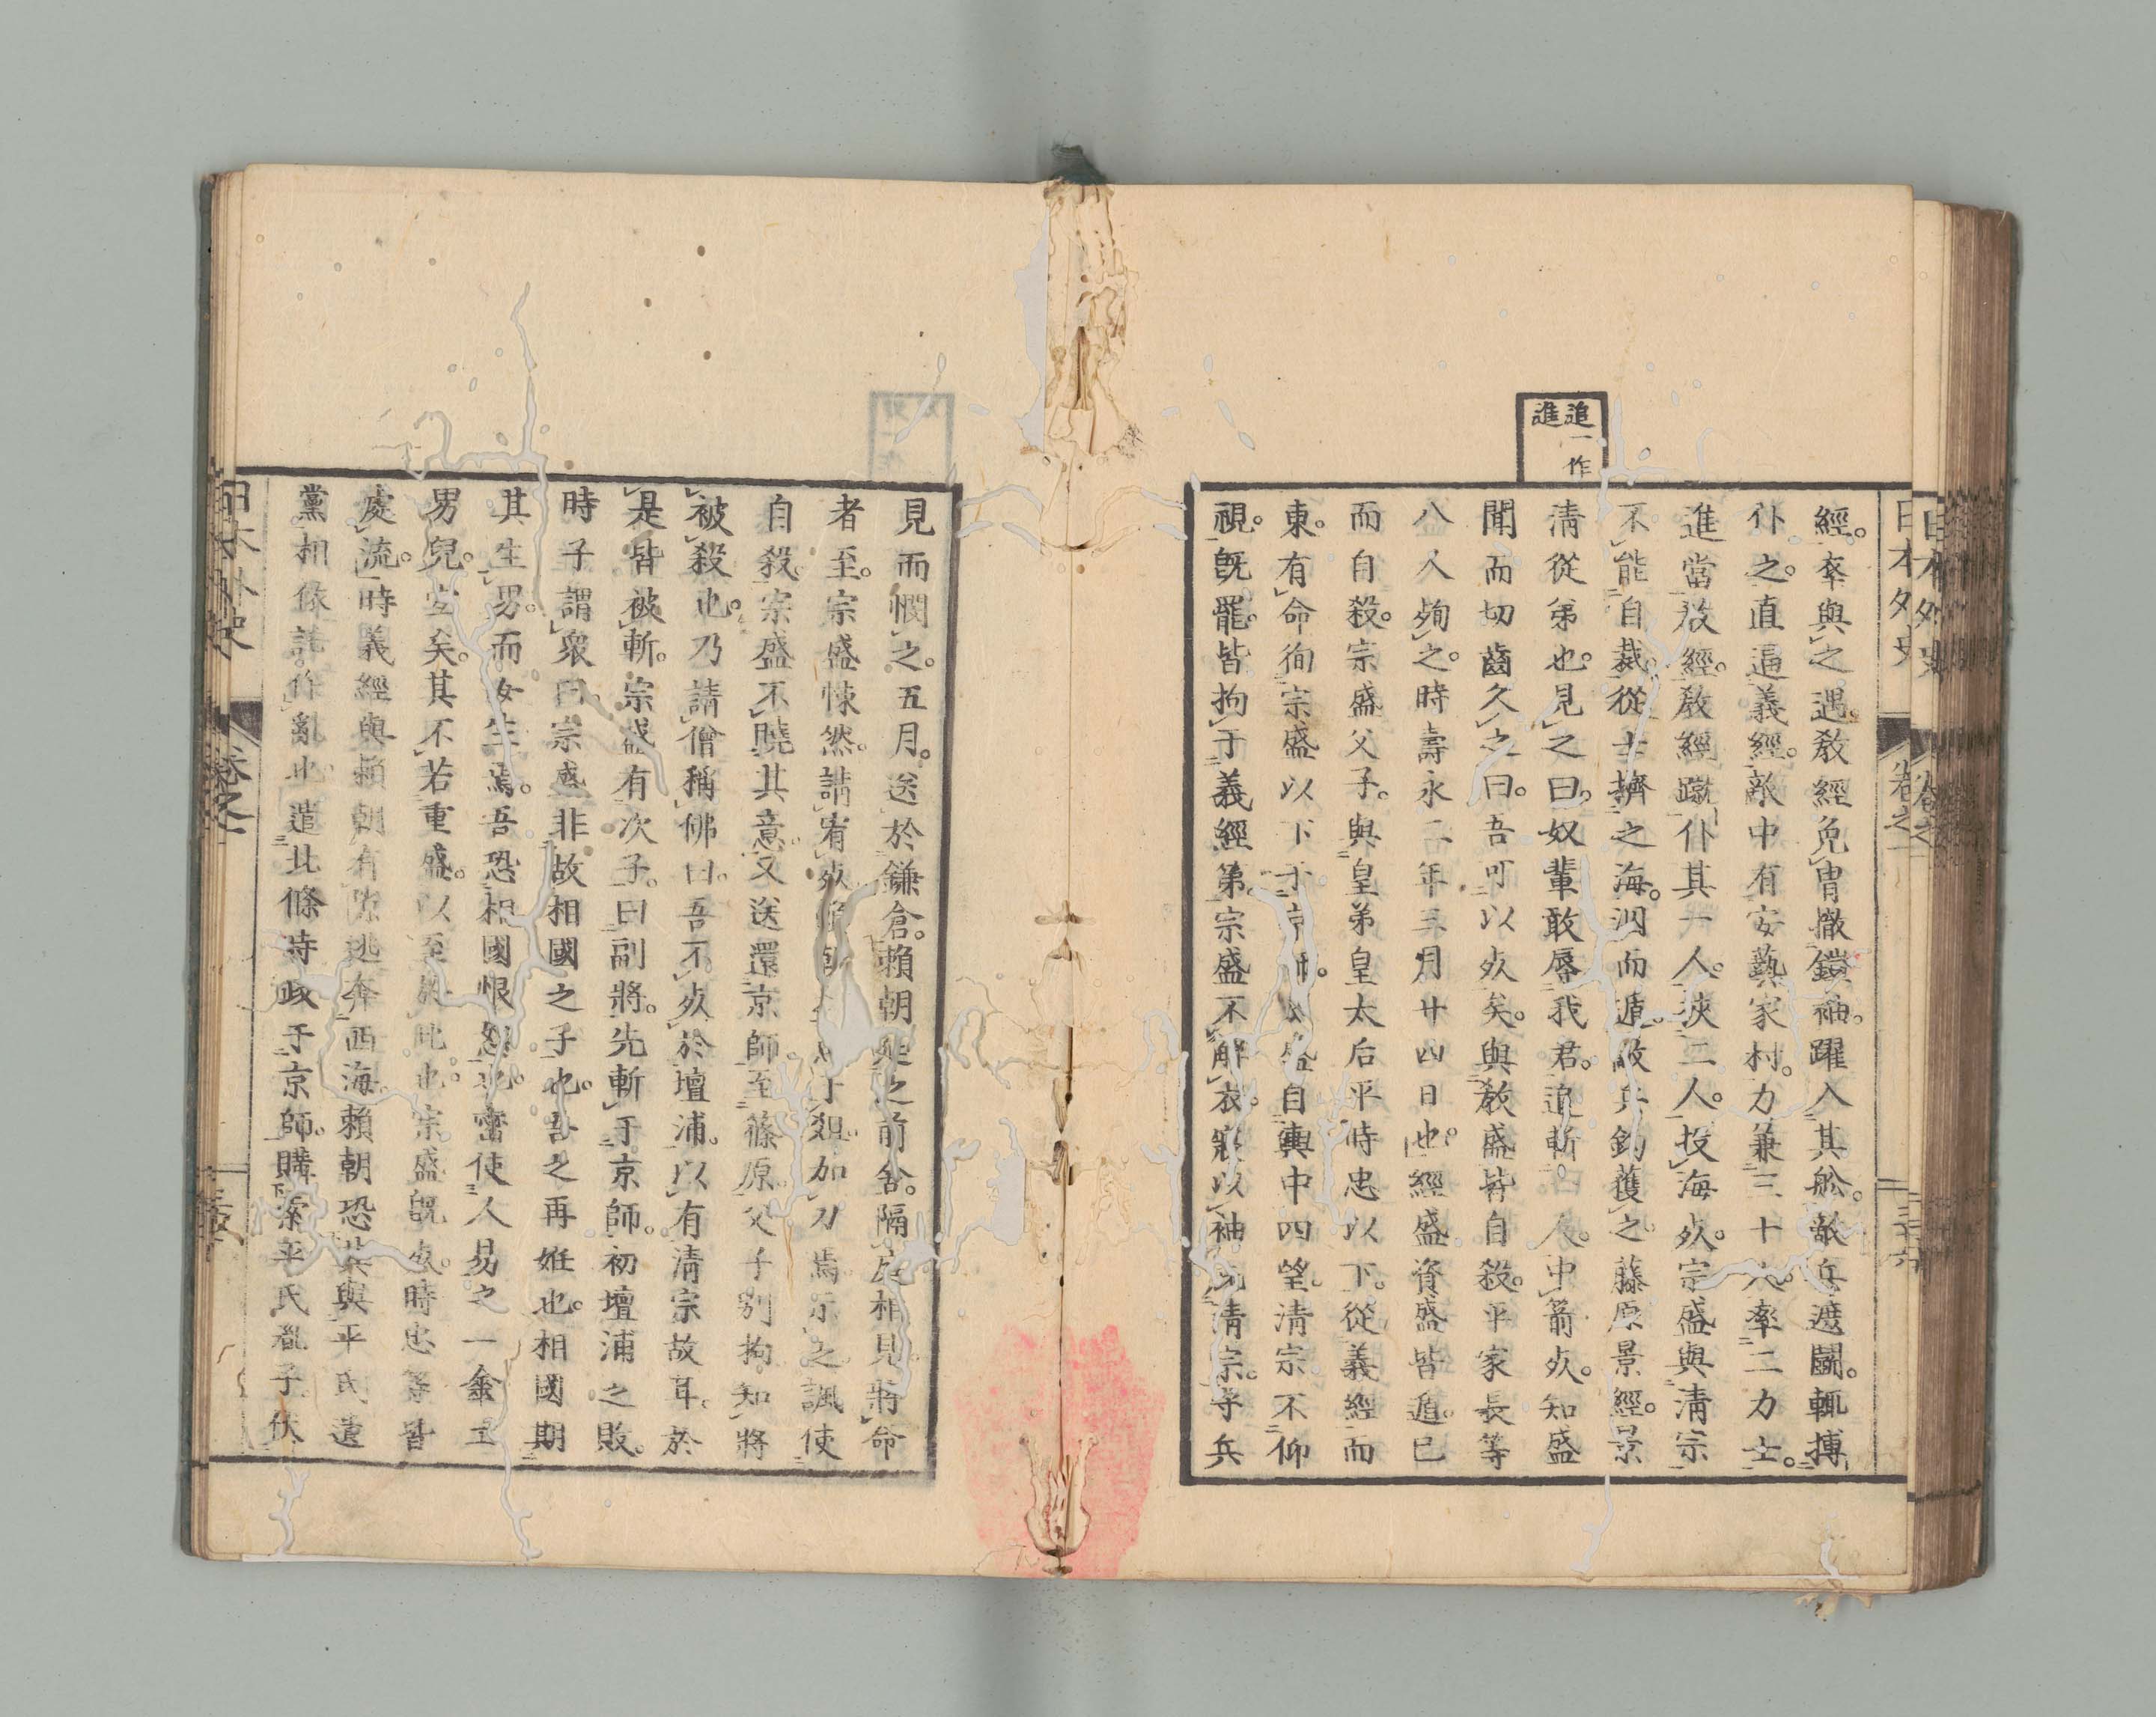 追一作
進
日本外史
卷之一
經。率與之遇。教經免冑撤鎧袖。躍入其舩。敵兵遮鬬。輒搏
仆之。直逼義經。敵中有安藝家村。力兼三十人。率二力士。
進當教經。教經蹴仆其一人。挾二人。投海死。宗盛與清宗
不能自裁。從士擠之海。泅而遁。敵兵鈎獲之。藤原景經。景
清從弟也。見之曰。奴輩敢辱我君。追斬人。中箭死。知盛
聞而切齒久之曰。吾可以死矣。與教盛皆自殺。平家長等
八人殉之。時壽永二年三月廿四日也。經盛資盛皆遁。已
而自殺。宗盛父子。與皇弟皇太后平時忠以下。從義經而
東。有命徇宗盛以下于京師。宗盛自輿中四望。清宗不仰
視。既罷。皆拘于義經第。宗盛不解衣。寢以袖清宗。守兵
見而憫之。五月。送於鎌倉。賴朝之前舍。隔相見。將命
者至。宗盛悚然。請宥死。加刀焉。示之諷使
自殺。宗盛不曉其意。又送還京師。至篠原。父子別拘。知將
被殺也。乃請僧稱佛曰。吾不死於壇浦。以有清宗故耳。於
是皆被斬。宗盛有次子。曰副將。先斬于京師。初壇浦之敗。
時子謂衆曰。宗盛非故相國之子也。吾之再姙也。相國期
其生男。而女生焉。吾恐相國恨怒也。密使人易之一
男兒。其不若重盛。以至於此也。宗盛既死。時忠等皆
處流。時義經與賴朝有隙。逃奔西海。賴朝恐其與平氏遺
黨相作亂也。遣北條時政于京師。購索平氏亂子伏
日本外史
卷之一